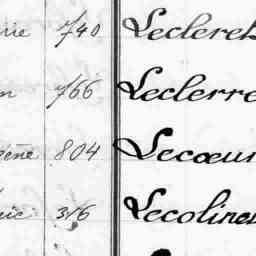 rie 740 Lecleret
n 766 Leclerre
gène 804 Lecœur
rie 316 Lecolines